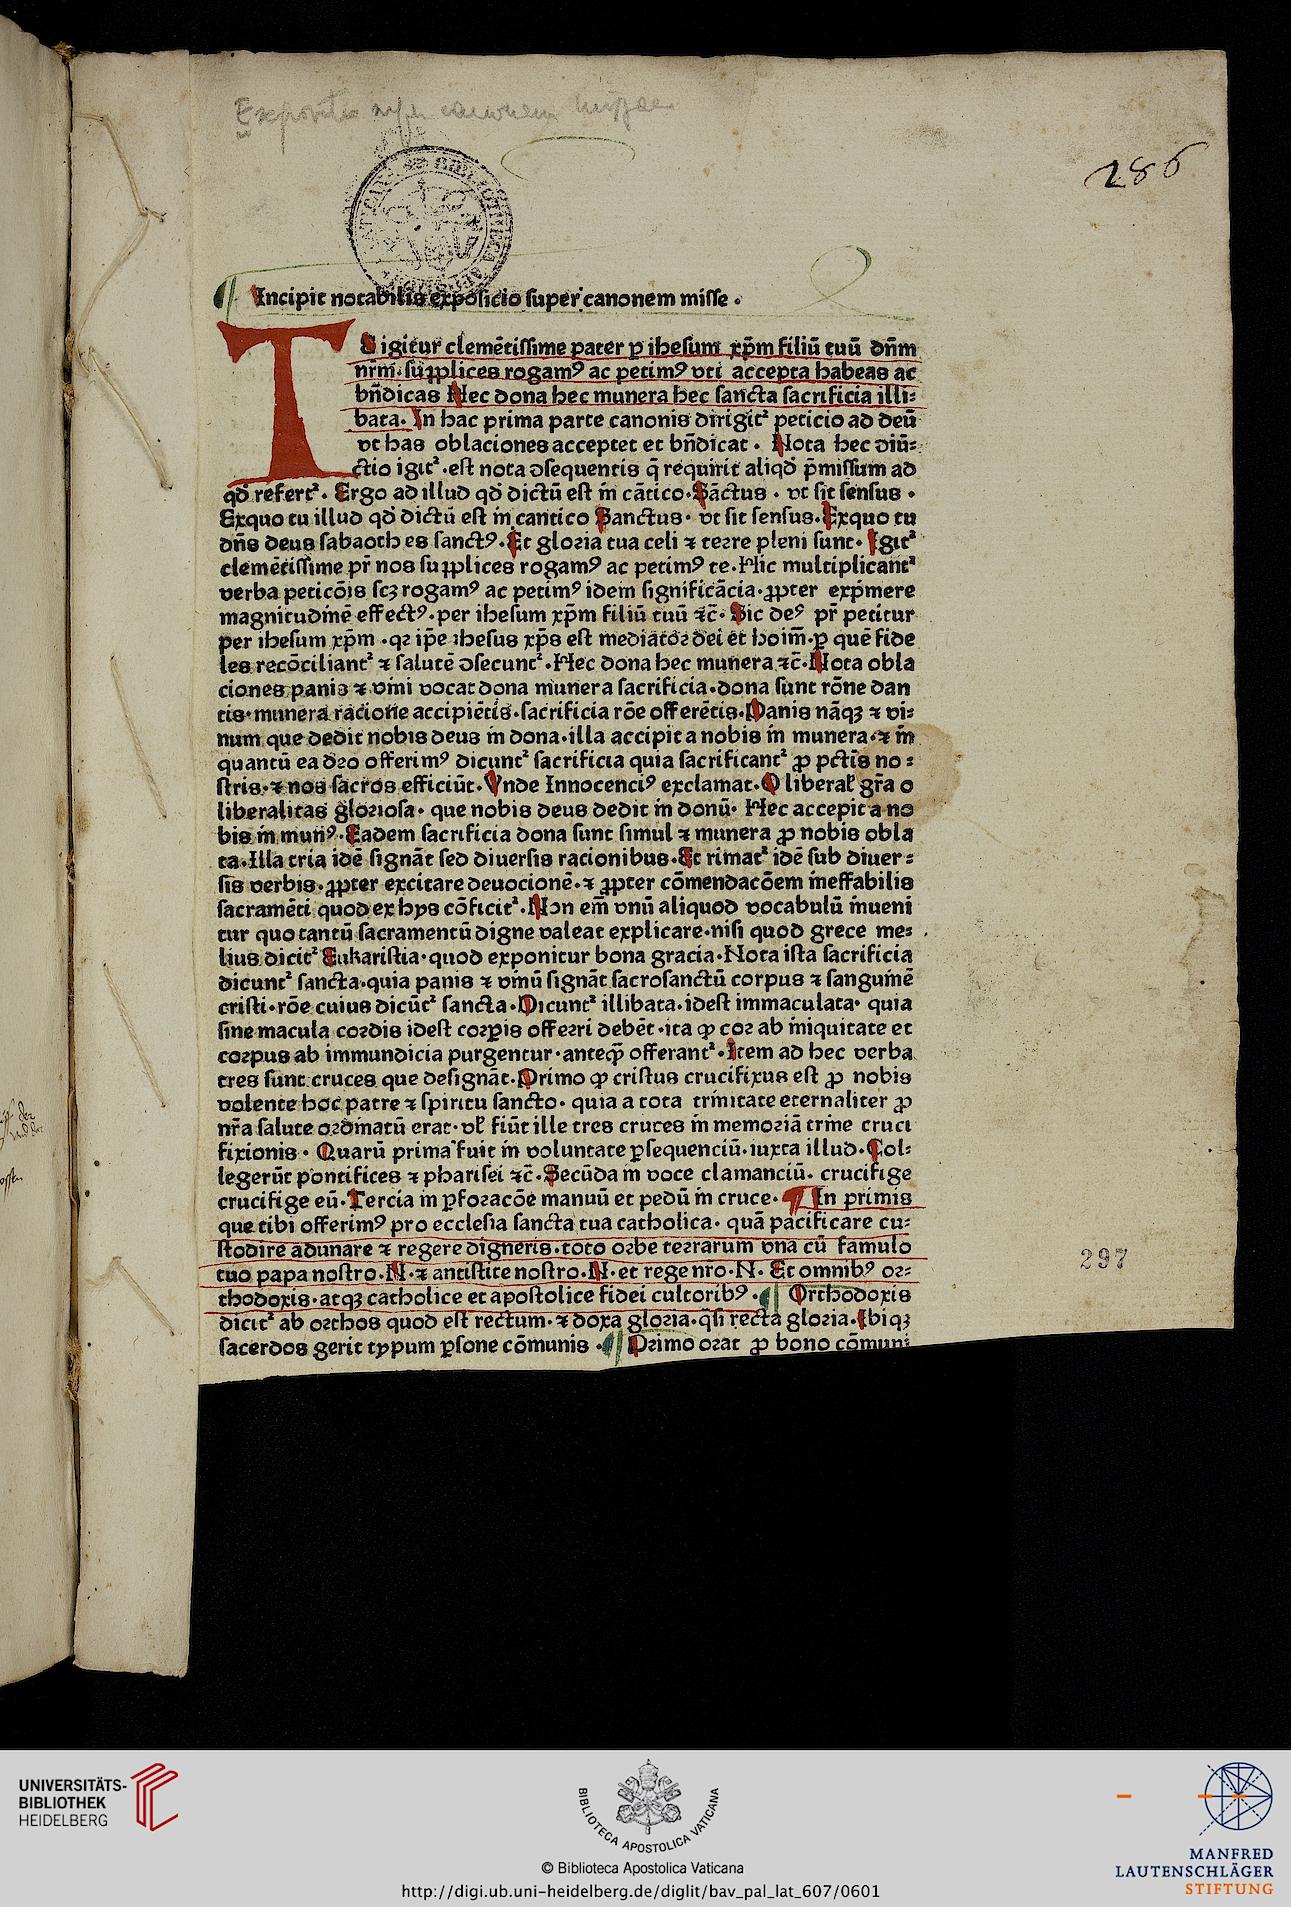 Expositio super canonem missae
286
Incipit notabilis exposicio super canonem misse .
TE igitur clemētissime pater ꝑ ihesum xp̄m filiū tuū dn̄m
nrm̄· suꝓplices rogamꝰ ac petimꝰ vti accepta habeas ac
bn̄dicas Hec dona hec munera hec sancta sacrificia illi⸗
bata. In hac prima parte canonis dirigitᷣ peticio ad deū
vt has oblaciones acceptet et bn̄dicat . Nota hec ↄiū⸗
ctio igitᷣ ·est nota ↄsequentis q̄ requirit aliqd̄ p̄missum ad
qd̄ refertᷣ. Ergo ad illud qd̄ dictū est in cātico·Sāctus · vt sit sensus ·
Exquo tu illud qd̄ dictū est in cantico Sanctus· vt sit sensus.Exquo tu
dn̄s deus sabaoth es sanctꝰ·Et gloria tua celi ⁊ terre pleni sunt· Igitᷣ
clemētissime pr̄ nos suꝓplices rogamꝰ ac petimꝰ te·Hic multiplicantᷣ
verba peticōis scꝫ rogamꝰ ac petimꝰ idem significācia·ꝓpter exp̄mere
magnitudinē effectꝰ·per ihesum xp̄m filiū tuū ⁊c̄· Sic deꝰ pr̄ petitur
per ihesum xp̄m ·qꝛ ip̄e ihesus xp̄s est mediator dei et hoim̄·ꝑ quē fide
les recōciliantᷣ ⁊ salutē ↄsecuntᷣ·Hec dona hec munera ⁊c̄·Nota obla
ciones panis ⁊ vini vocat dona munera sacrificia·dona sunt rōne dan
tis· munera racione accipiētis·sacrificia rōe offerētis·Panis nāqꝫ ⁊ vi⸗
num que dedit nobis deus in dona·illa accipit a nobis in munera·⁊ in
quantū ea deo offerimꝰ dicuntᷣ sacrificia quia sacrificantᷣ ꝓ pctīs no⸗
stris·⁊ nos sacros efficiūt. Vnde Innocenciꝰ exclamat·O liberal̕ gr̄a o
liberalitas gloriosa· que nobis deus dedit in donū· Hec accepit a no
bis in munꝰ·Eadem sacrificia dona sunt simul ⁊ munera ꝓ nobis obla
ta·Illa tria idē signāt sed diuersis racionibus·Et rimatᷣ idē sub diuer⸗
sis verbis·ꝓpter excitare deuocionē·⁊ ꝓpter cōmendacōem ineffabilis
sacramēti quod ex hys cōficitᷣ·Non em̄ vnū aliquod vocabulū inueni
tur quo tantū sacramentū digne valeat explicare·nisi quod grece me⸗
lius dicitᷣ Eukaristia·quod exponitur bona gracia·Nota ista sacrificia
dicuntᷣ sancta·quia panis ⁊ vinū signāt sacrosanctū corpus ⁊ sanguinē
cristi·rōe cuius dicūtᷣ sancta·Dicuntᷣ illibata·idest immaculata· quia
sine macula cordis idest corpis offerri debēt·ita ꝙ cor ab iniquitate et
corpus ab immundicia purgentur·anteꝙ̄ offerantᷣ·Item ad hec verba
tres sunt cruces que designāt·Primo ꝙ cristus crucifixus est ꝓ nobis
volente hoc patre ⁊ spiritu sancto· quia a tota trinitate eternaliter ꝓ
nr̄a salute ordinatū erat·vl̕ fiūt ille tres cruces in memoriā trine cruci
fixionis · Quarū prima fuit in voluntate ꝑsequenciū·iuxta illud·Col⸗
legerūt pontifices ⁊ pharisei ⁊c̄·Secūda in voce clamanciū· crucifige
crucifige eū·Tercia in ꝑforacōe manuū et pedū in cruce· ¶ In primis
que tibi offerimꝰ pro ecclesia sancta tua catholica· quā pacificare cu⸗
stodire adunare ⁊ regere digneris·toto orbe terrarum vna cū famulo
tuo papa nostro·N·⁊ antistite nostro·N·et rege nro·N· Et omnibꝰ or⸗
thodoxis·atqꝫ catholice et apostolice fidei cultoribꝰ·¶ Orthodoxis
dicitᷣ ab orthos quod est rectum·⁊ doxa gloria·qᷤi recta gloria·Ibiqꝫ
sacerdos gerit typum ꝑsone cōmunis ·¶ Primo orat ꝓ bono cōmuni
297
UNIVERSITÄTS-
BIBLIOTHEK
HEIDELBERG
BIBLIOTECA APOSTOLICA VATICANA
© Biblioteca Apostolica Vaticana
http://digi.ub.uni-heidelberg.de/diglit/bav_pal_lat_607/0601
MANFRED
LAUTENSCHLÄGER
STIFTUNG